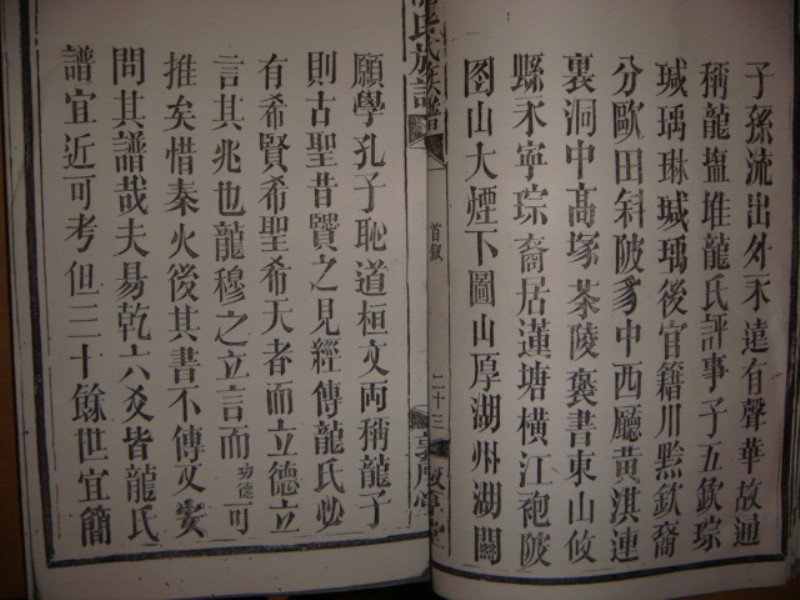 子孫流出外不遠有聲華故通
稱龍塩堆龍氏評事子五欽琮
瑊瑀琳瑊瑀後官籍川黔欽裔
分歐田斜陂豸中西廳黃淇連
裏洞中高塚茶陵褒書東山攸
縣永寧琮裔居蓮塘橫江袍陂
圊山大煙下圖山厚湖州湖關
氏族譜
首叙
二十三
堂
願學孔子恥道桓文両稱龍子
則古聖昔賢之見經傳龍氏必
有希賢希聖希天者而立德立
言其兆也龍穆之立言而功德可
推矣惜秦火後其書不傳又安
問其譜哉夫易乾六爻皆龍氏
譜宜近可考但三十餘世宜簡